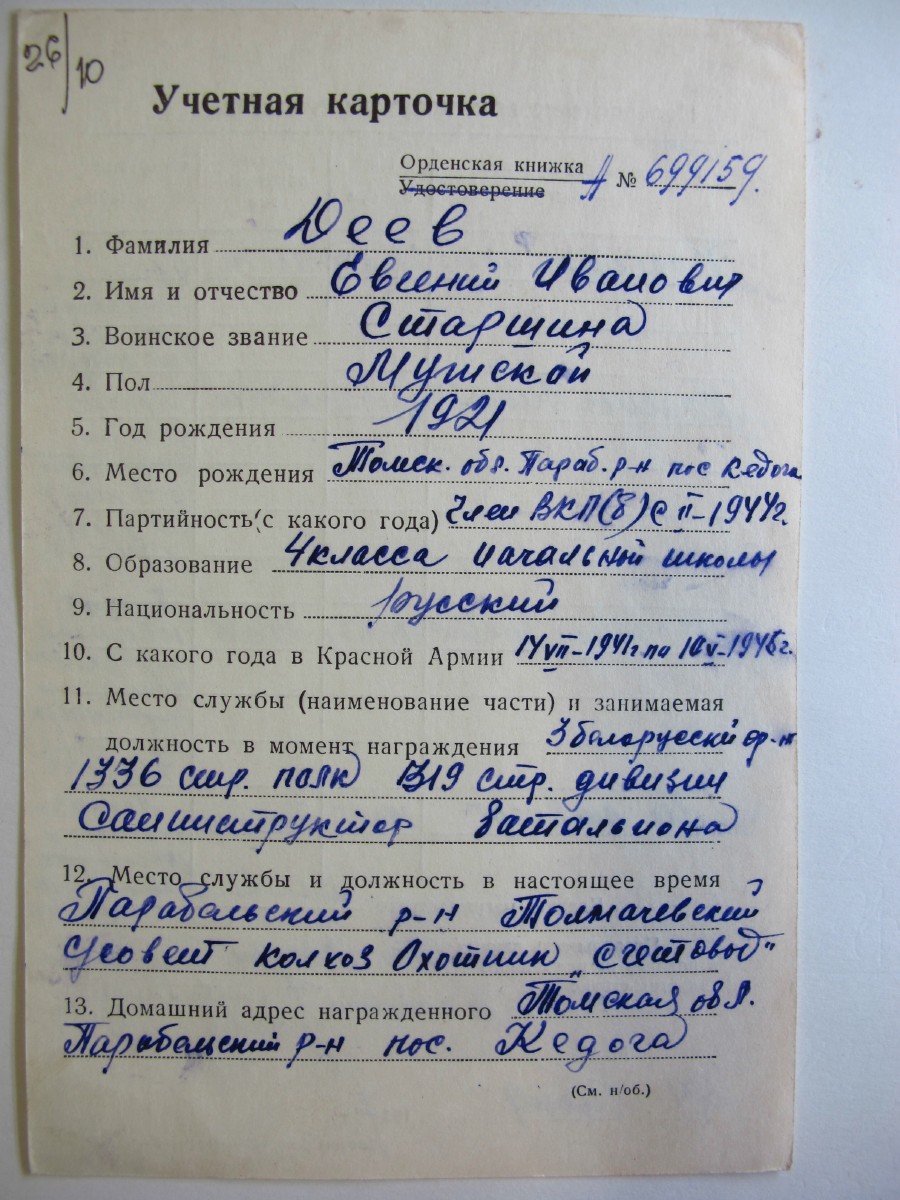 26/10
Учетная карточка
Орденская книжка
Удостоверение А № 699159.
1. Фамилия Деев
2. Имя и отчество Евгений Иванович
3. Воинское звание Старшина
4. Пол Мужской
5. Год рождения 1921
6. Место рождения Томск. обл. Параб. р-н пос Кедога
7. Партийность (с какого года) Член ВКП(б) с II-1944г.
8. Образование 4 класса начальной школы
9. Национальность русский
10. С какого года в Красной Армии 14 VII-1941г по 10 V-1945г.
11. Место службы (наименование части) и занимаемая
должность в момент награждения 3 белорусский фр-т
1336 стр. полк 319 стр. дивизии
Санинструктор батальиона
12. Место службы и должность в настоящее время
Парабельский р-н Толмачевский
с/совет колхоз Охотник „счетовод"
13. Домашний адрес награжденного Томская обл.
Парабельский р-н пос. Кедога
(См. н/об.)